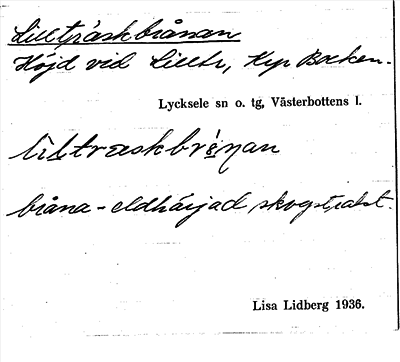 Lillträskbrånan
Höjd vid Lilltr, Kyr Backen.
Lycksele sn o. tg, Västerbottens l.
bråna - eldhärjad skogstrakt.
Lisa Lidberg 1936.